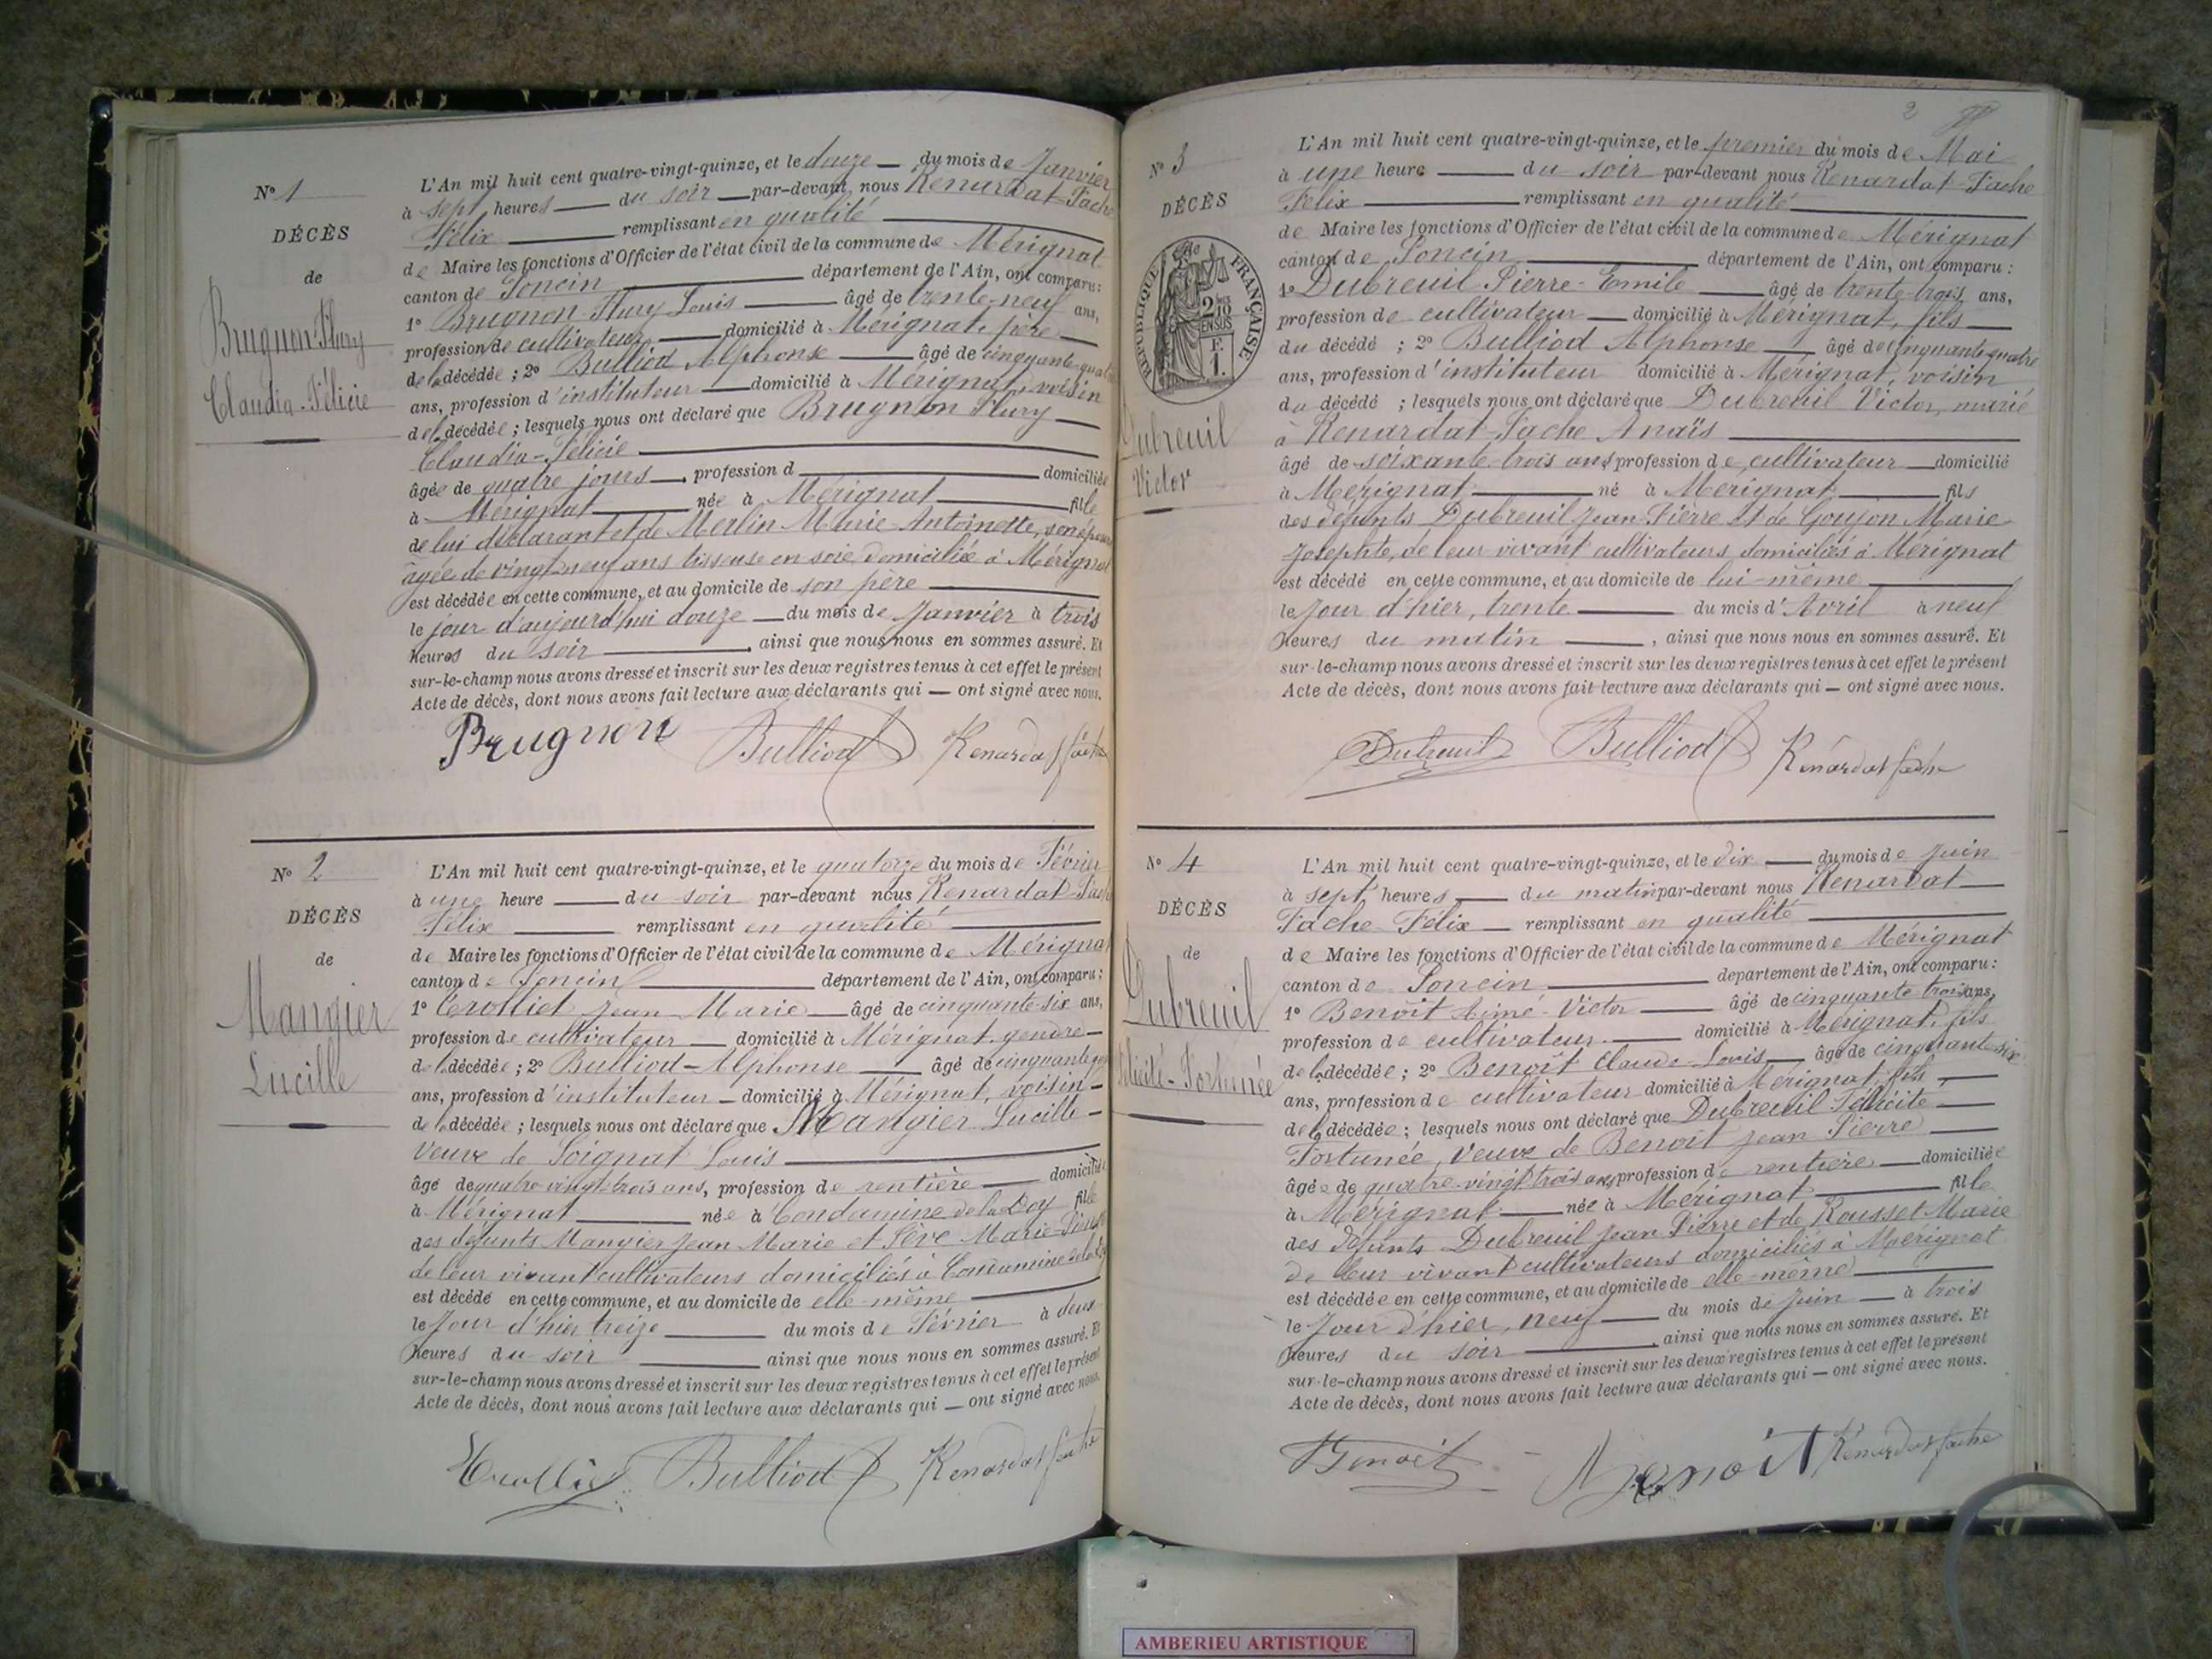 Nº 1
DÉCÈS
de
Brugnon-Flury
Claudia-Félicie
L'An mil huit cent quatre-vingt-quinze, et le douze — du mois de Janvier
à sept heures — du soir — par-devant nous Renardat-Fache
Félix — remplissant en qualité
de Maire les fonctions d'Officier de l'état civil de la commune de Mérignat
canton de Poncin — département de l'Ain, ont comparu :
1º Brugnon-Flury Louis — âgé de trente-neuf ans,
profession de cultivateur — domicilié à Mérignat, père —
de la décédée ; 2º Bulliod Alphonse — âgé de cinquante-quatre
ans, profession d'instituteur — domicilié à Mérignat, voisin
de la décédée ; lesquels nous ont déclaré que Brugnon Flury —
Claudia-Félicie —
âgée de quatre jours —, profession d — domiciliée
à Mérignat — née à Mérignat — fille
de lui déclarant et de Merlin Marie-Antoinette, son épouse
âgée de vingt-neuf ans tisseuse en soie domiciliée à Mérignat
est décédée en cette commune, et au domicile de son père —
le jour d'aujourd'hui douze — du mois de Janvier à trois
heures du soir —, ainsi que nous nous en sommes assuré. Et
sur-le-champ nous avons dressé et inscrit sur les deux registres tenus à cet effet le présent
Acte de décès, dont nous avons fait lecture aux déclarants qui — ont signé avec nous.
Brugnon Bulliod Renardat fache
Nº 2
DÉCÈS
de
Mangier
Lucille
L'An mil huit cent quatre-vingt-quinze, et le quatorze du mois de Février
à une heure — du soir par-devant nous Renardat-Fache
Félix — remplissant en qualité
de Maire les fonctions d'Officier de l'état civil de la commune de Mérignat
canton de Poncin — département de l'Ain, ont comparu :
1º Crolliet Jean Marie — âgé de cinquante-six ans,
profession de cultivateur — domicilié à Mérignat, gendre —
de la décédée ; 2º Bulliod-Alphonse — âgé de cinquante-quatre
ans, profession d'instituteur — domicilié à Mérignat, voisin —
de la décédée ; lesquels nous ont déclaré que Mangier Lucille —
Veuve de Soignat Louis —
âgé de quatre-vingt-trois ans, profession de rentière — domiciliée
à Mérignat — née à Condamine de la Doy fille
des défunts Mangier Jean Marie et Pève Marie
de leur vivant cultivateurs domiciliés à Condamine de la Doy
est décédé en cette commune, et au domicile de elle-même —
le Jour d'hier treize — du mois de Février à deux
heures du soir — ainsi que nous nous en sommes assuré. Et
sur-le-champ nous avons dressé et inscrit sur les deux registres tenus à cet effet le présent
Acte de décès, dont nous avons fait lecture aux déclarants qui — ont signé avec nous.
Bulliod Renardat fache
2
Nº 3
DÉCÈS
de
RÉPUBLIQUE FRANÇAISE
2/10 EN SUS
F.
1.
Dubreuil
Victor
L'An mil huit cent quatre-vingt-quinze, et le premier du mois de Mai
à une heure — du soir par-devant nous Renardat-Fache
Félix — remplissant en qualité
de Maire les fonctions d'Officier de l'état civil de la commune de Mérignat
canton de Poncin — département de l'Ain, ont comparu :
1º Dubreuil Pierre-Emile — âgé de trente-trois ans,
profession de cultivateur — domicilié à Mérignat, fils —
du décédé ; 2º Bulliod Alphonse — âgé de cinquante quatre
ans, profession d'instituteur domicilié à Mérignat, voisin
du décédé ; lesquels nous ont déclaré que Dubreuil Victor, marié
à Renardat-Fache Anaïs —
âgé de soixante-trois ans profession de cultivateur — domicilié
à Mérignat — né à Mérignat — fils
des défunts Dubreuil Jean-Pierre et de Goujon Marie
Josephte, de leur vivant cultivateurs domiciliés à Mérignat
est décédé en cette commune, et au domicile de lui-même —
le Jour d'hier, trente — du mois d'Avril à neuf
heures du matin —, ainsi que nous nous en sommes assuré. Et
sur-le-champ nous avons dressé et inscrit sur les deux registres tenus à cet effet le présent
Acte de décès, dont nous avons fait lecture aux déclarants qui — ont signé avec nous.
Dubreuil Bulliod Renardat fache
Nº 4
DÉCÈS
de
Dubreuil
Félicité-Fortunée
L'An mil huit cent quatre-vingt-quinze, et le dix — du mois de Juin
à sept heures — du matin par-devant nous Renardat —
Fache Félix — remplissant en qualité —
de Maire les fonctions d'Officier de l'état civil de la commune de Mérignat
canton de Poncin — département de l'Ain, ont comparu :
1º Benoît Aimé-Victor — âgé de cinquante trois ans,
profession de cultivateur — domicilié à Mérignat, fils
de la décédée ; 2º Benoît Claude-Louis — âgé de cinquante six
ans, profession de cultivateur domicilié à Mérignat, fils —
de la décédée ; lesquels nous ont déclaré que Dubreuil Félicité —
Fortunée, Veuve de Benoît Jean Pierre —
âgée de quatre-vingt trois ans, profession de rentière — domiciliée
à Mérignat — née à Mérignat — fille
des défunts Dubreuil Jean Pierre et de Rousset Marie
de leur vivant cultivateurs domiciliés à Mérignat
est décédée en cette commune, et au domicile de elle-même —
le Jour d'hier, neuf — du mois de Juin — à trois
heures du soir —, ainsi que nous nous en sommes assuré. Et
sur-le-champ nous avons dressé et inscrit sur les deux registres tenus à cet effet le présent
Acte de décès, dont nous avons fait lecture aux déclarants qui — ont signé avec nous.
Benoit Benoit Renardat fache
AMBERIEU ARTISTIQUE